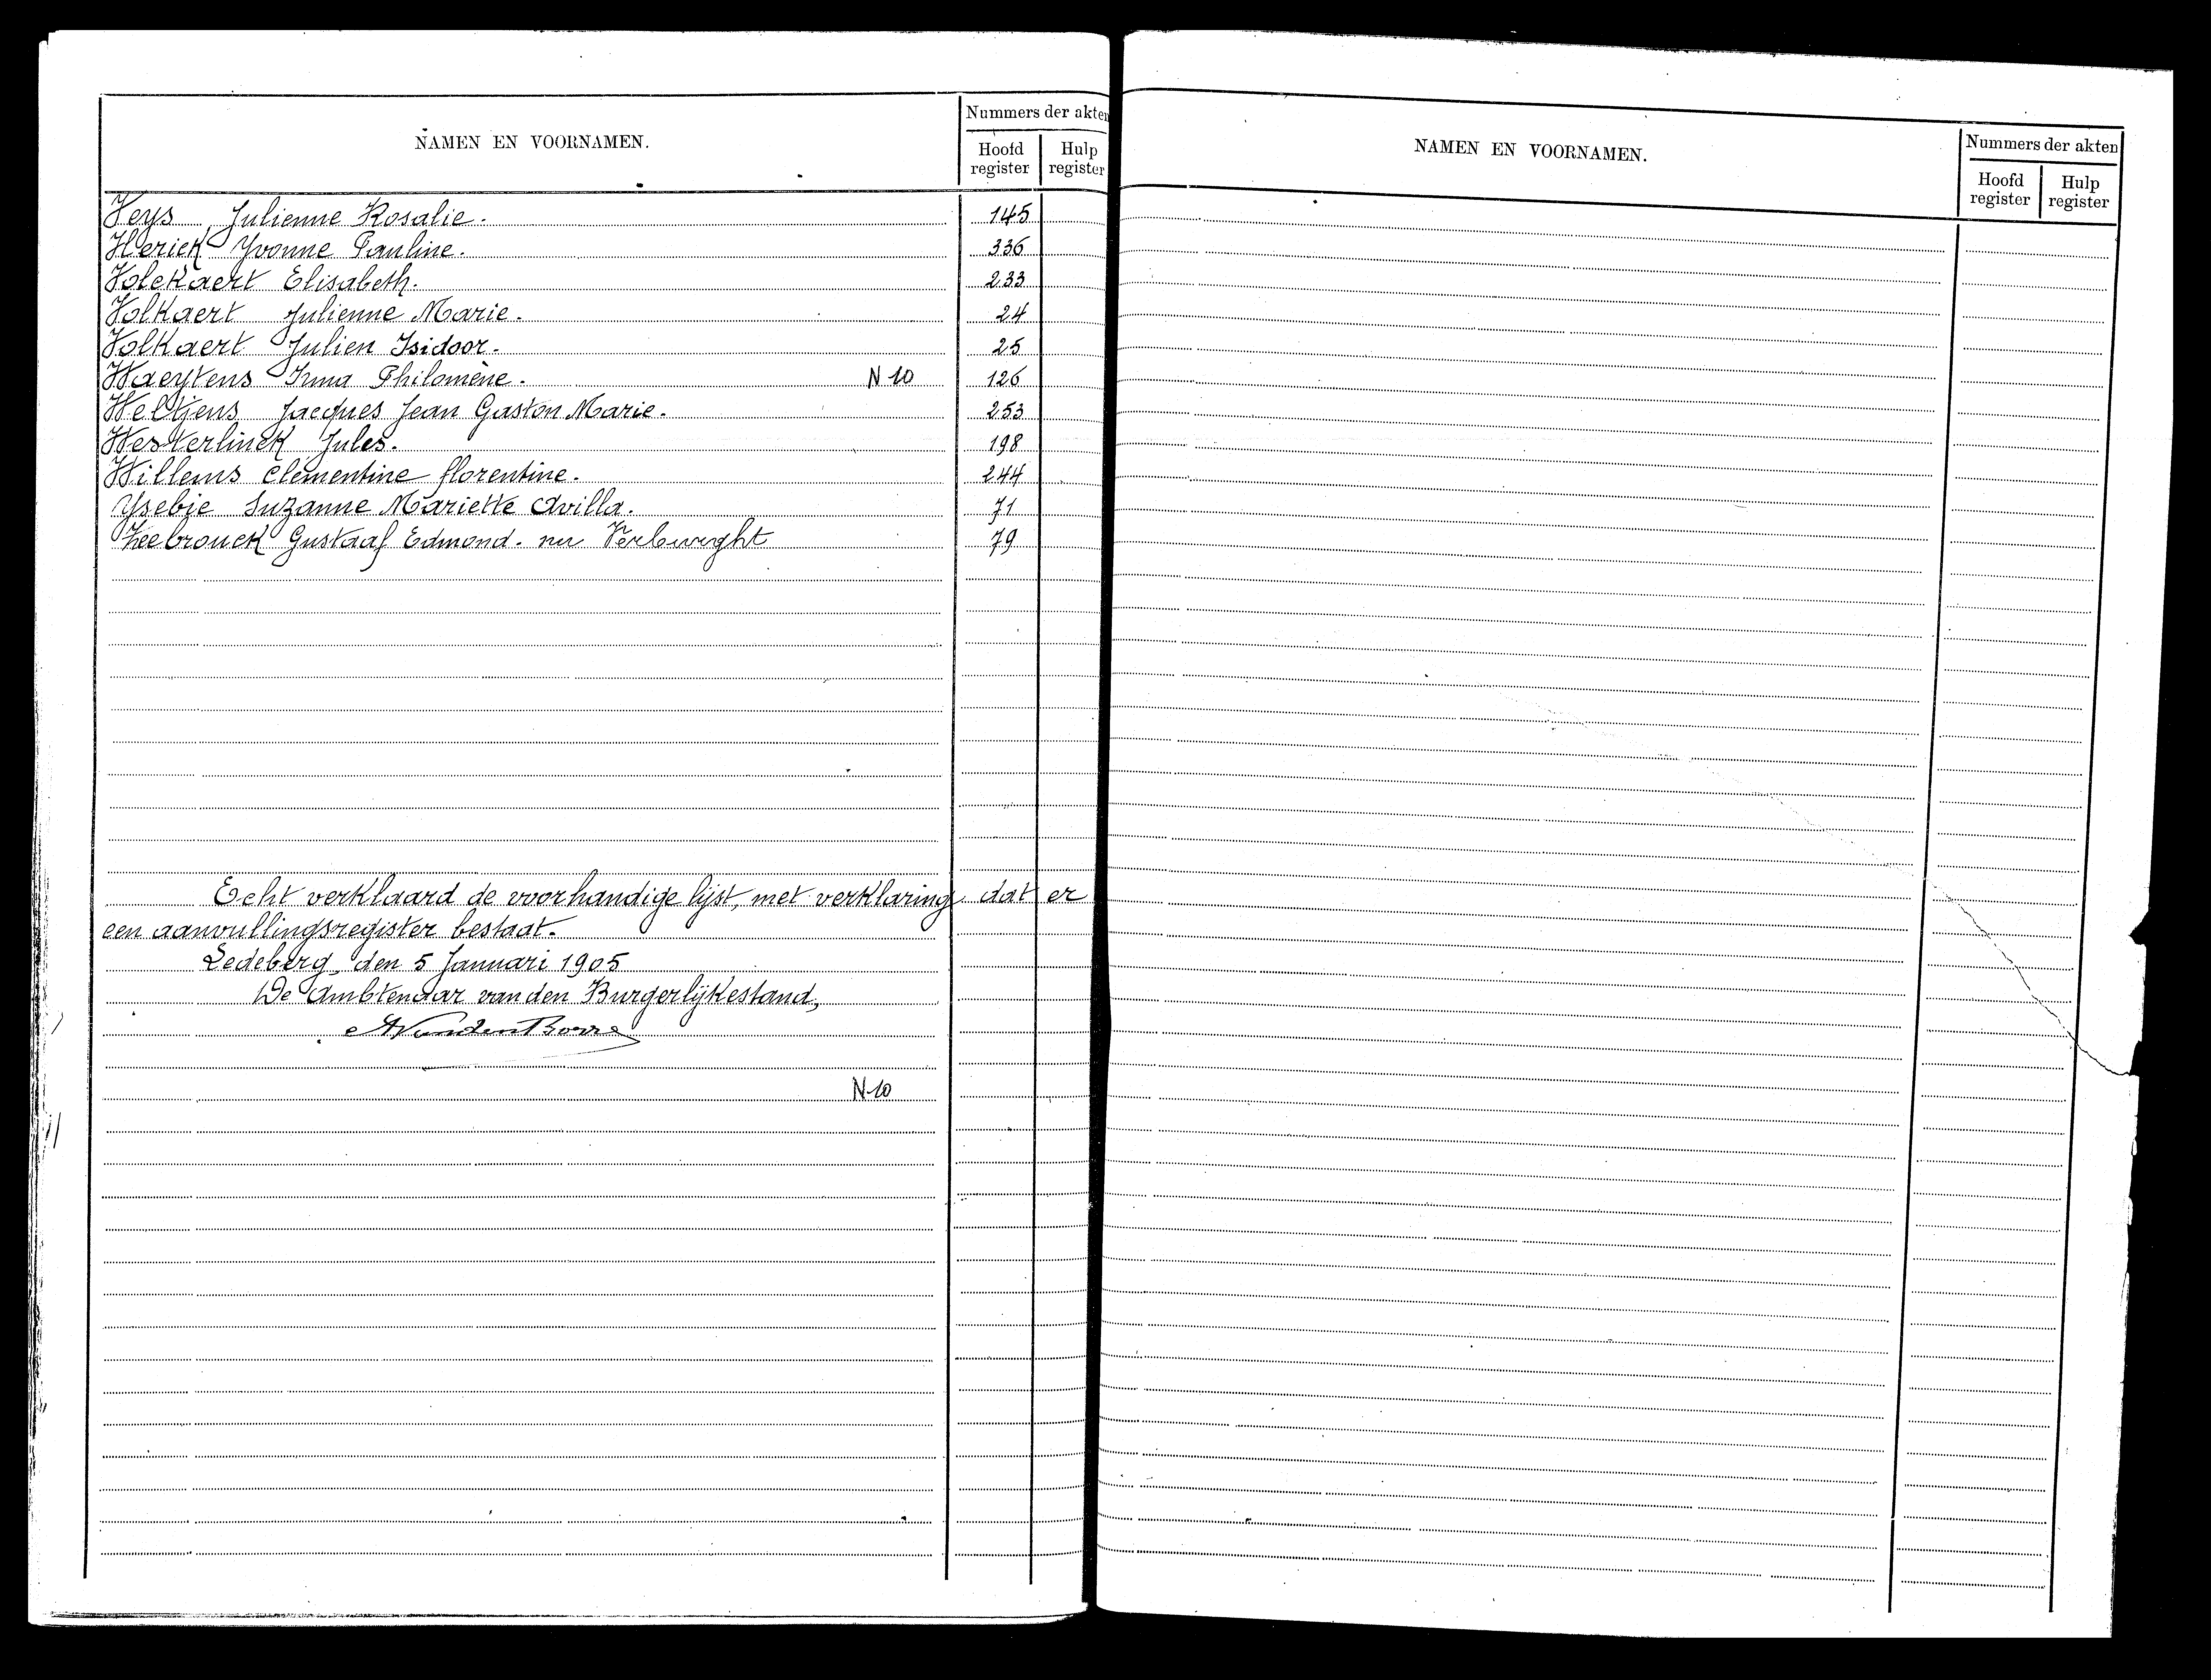 NAMEN EN VOORNAMEN.
Nummers der akten
Hoofd register
Hulp register
Veys Julienne Rosalie. 145
Vlerick Yvonne Pauline. 336
Volckaert Elisabeth. 233
Volkaert Julienne Marie. 24
Volkaert Julien Isidoor. 25
Waeytens Irma Philomène. N 10 126
Weltjens Jacques Jean Gaston Marie. 253
Westerlinck Jules. 198
Willems Clementine florentine. 244
Ysebie Suzanne Mariette Avilla. 71
Zeebrouck Gustaaf Edmond. nu Verburght 79
Echt verklaard de voorhandige lijst, met verklaring dat er
een aanvullingsregister bestaat.
Ledeberg, den 5 Januari 1905
De Ambtenaar van den Burgerlijkestand,
AVandenBorre
N 10
NAMEN EN VOORNAMEN.
Nummers der akten
Hoofd register
Hulp register